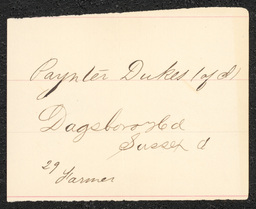 Paynter Dukes (of J)
Dagsboro Hd
Sussex
29
Farmer